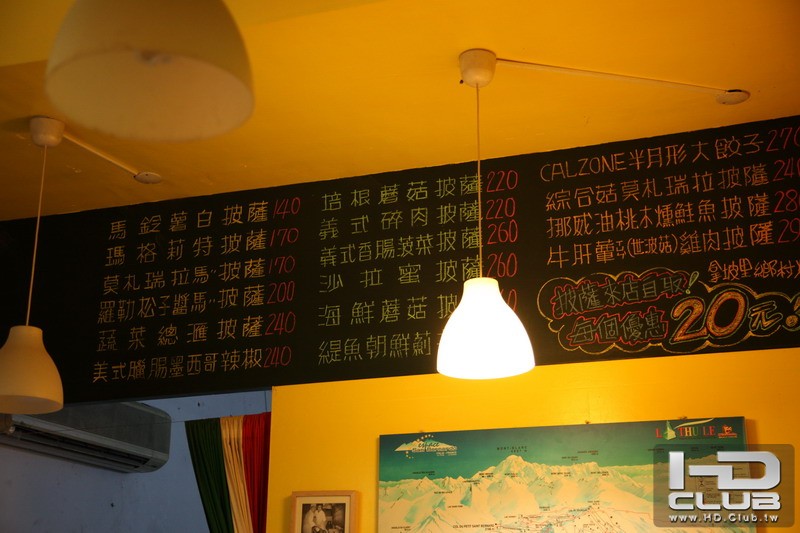 馬鈴薯白披薩140
瑪格莉特披薩170
莫札瑞拉馬"披薩170
羅勒松子醬馬"披薩200
蔬菜總滙披薩240
美式臘腸墨西哥辣椒240
培根蘑菇披薩220
義式碎肉披薩220
義式香腸菠菜披薩260
沙拉蜜披薩260
海鮮蘑菇披薩
鯷魚朝鮮薊
CALZONE半月形大餃子270
綜合菇莫札瑞拉披薩240
挪威油桃木燻鮭魚披薩280
牛肝蕈(世披菇)雞肉披薩
拿坡里鄉村
披薩來店自取!
每個優惠20元!
MONT-BLANC
THULE
HD
CLUB
www.HD.Club.tw